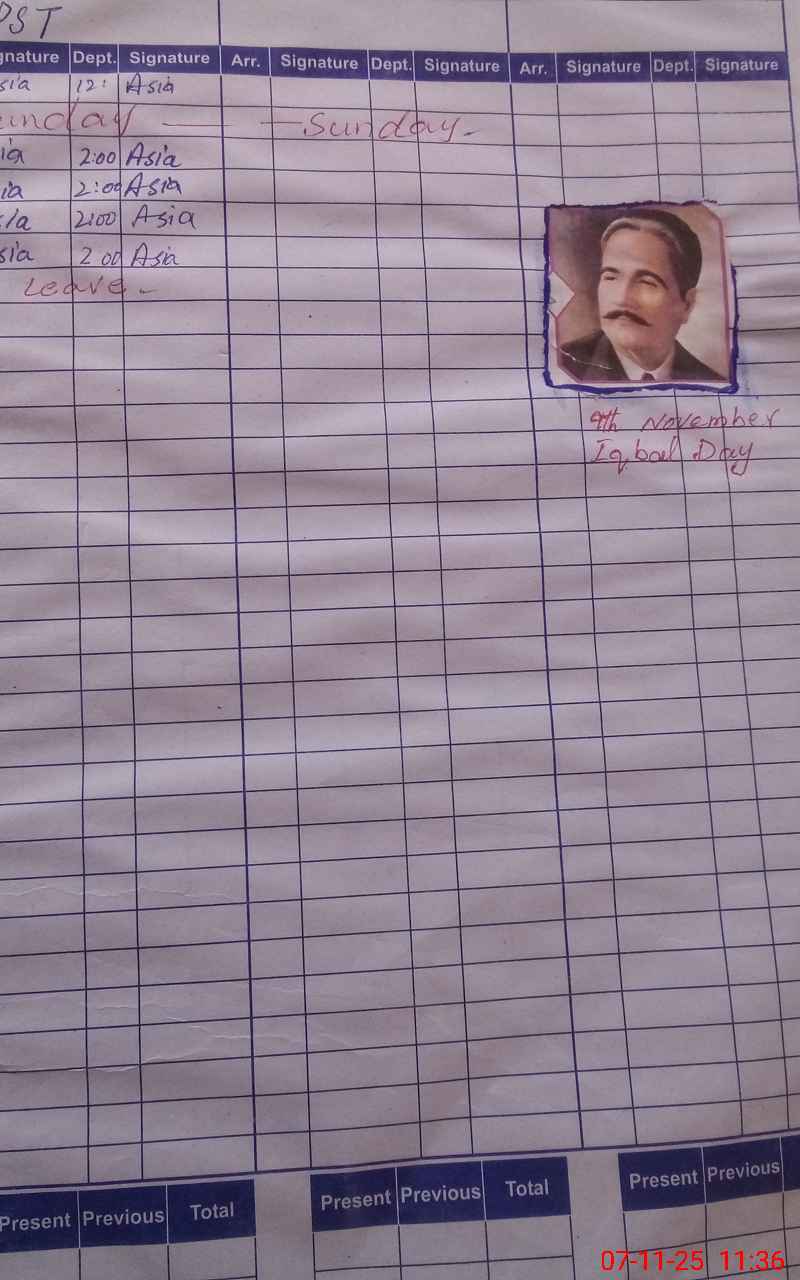 PST
gnature Dept. Signature Arr. Signature Dept. Signature Arr. Signature Dept. Signature
sia 12: Asia
unday — Sunday.
ia 2:00 Asia
ia 2:00 Asia
sia 2:00 Asia
sia 2 00 Asia
Leave.
9th November
Iqbal Day
Present Previous Total Present Previous Total Present Previous
07-11-25 11:36